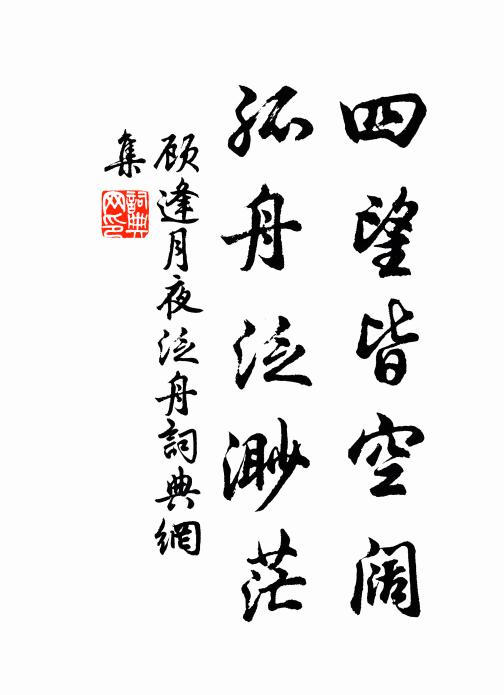 四望皆空阔
孤舟泛渺茫
顾逢月夜泛舟詞典網
集
詞典网印